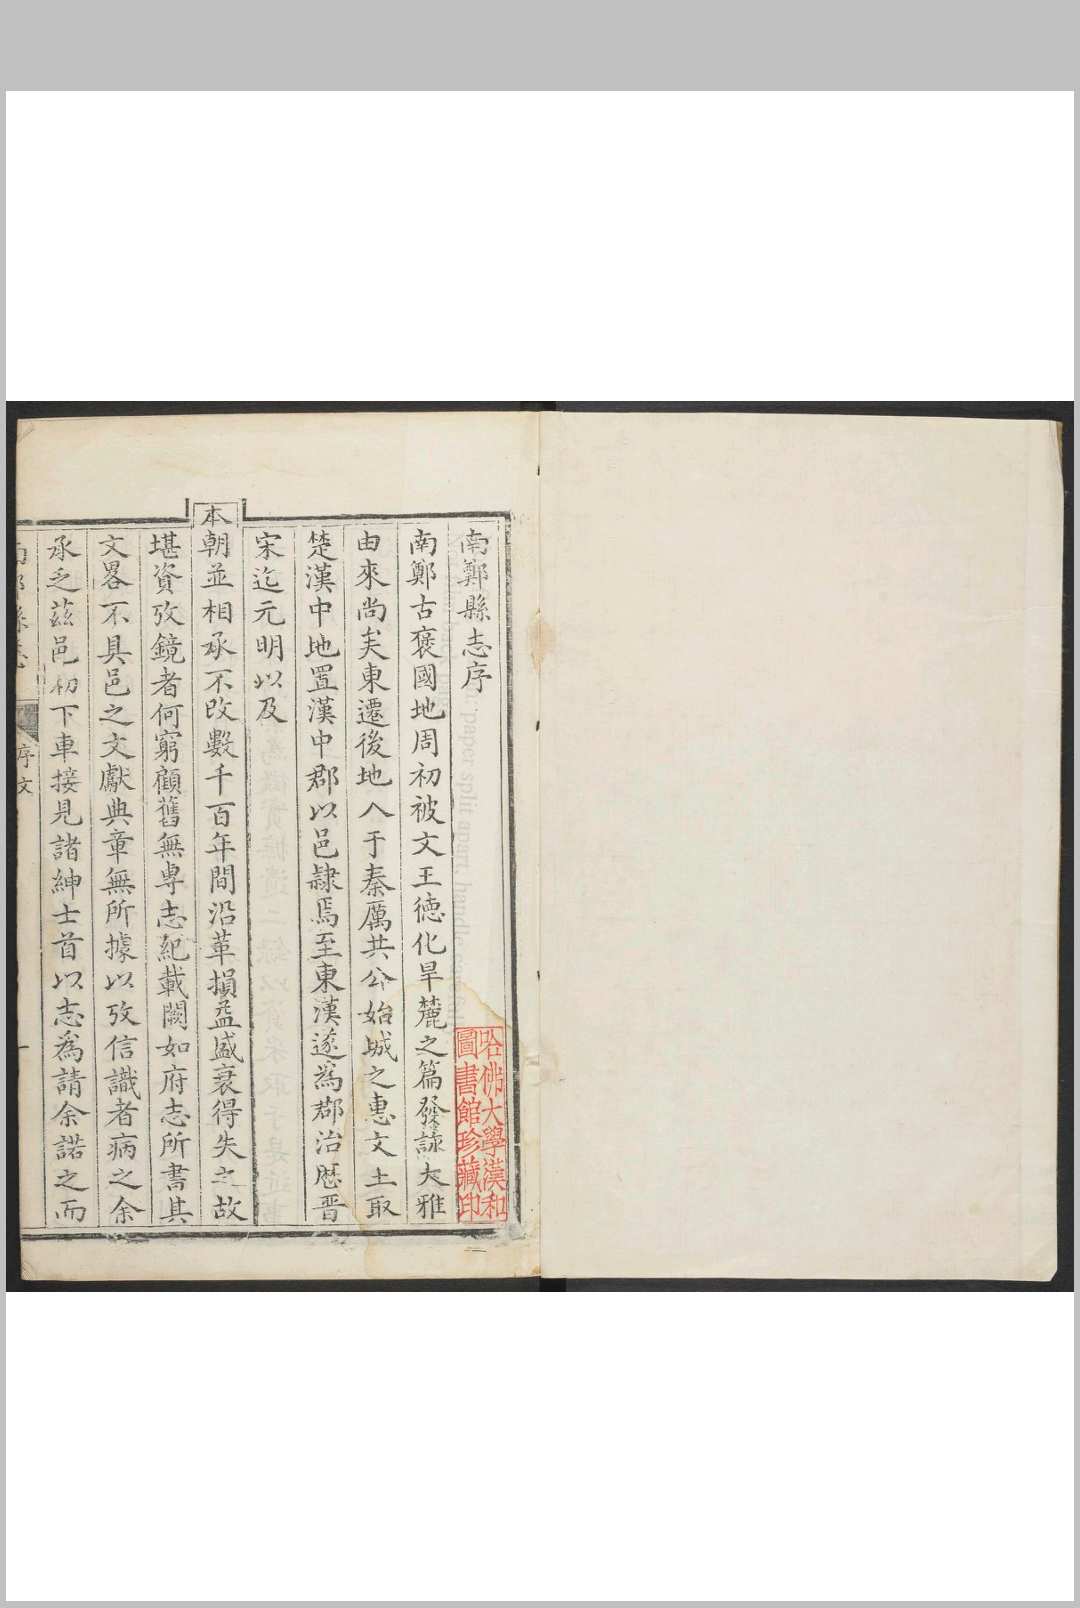 南鄭縣志序
南鄭古褒國地周初被文王德化旱麓之篇發詠大雅
由來尚矣東遷後地入于秦厲共公始城之惠文土取
楚漢中地置漢中郡以邑隸焉至東漢遂為郡治歷晉
宋迄元明以及
本朝並相承不改數千百年間沿革損益盛衰得失之故
堪資攷鏡者何窮顧舊無專志紀載闕如府志所書其
文畧不具邑之文獻典章無所據以攷信識者病之余
承乏茲邑初下車接見諸紳士首以志為請余諾之而
南鄭縣志
序文
一
哈佛大學漢和
圖書館珍藏印